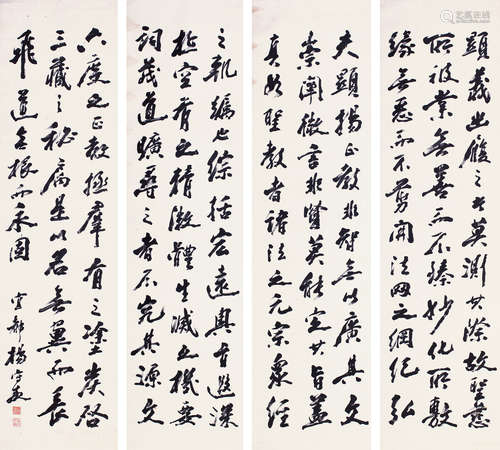 顯義幽履之者莫測其際故聖慈
所被業無善而不臻妙化所敷
緣無惡而不剪開法網之綱紀弘
夫顯揚正教非智無以廣其文
崇闡微言非賢莫能定其旨蓋
真如聖教者諸法之元宗眾經
之軌躅也綜括宏遠奧旨遐深
極空有之精微體生滅之機要
詞茂道曠尋之者不究其源文
六度之正教拯羣有之塗炭啓
三藏之秘扃是以名無翼而長
飛道無根而永固
宜都楊守敬